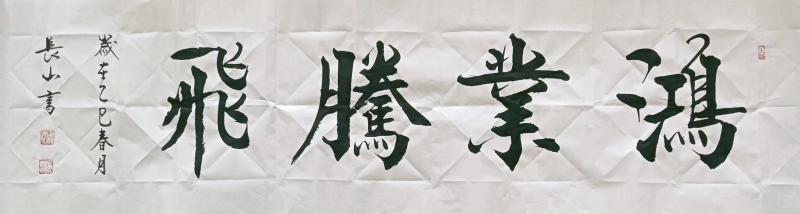 鴻業騰飛
歲在乙巳春月
長山書